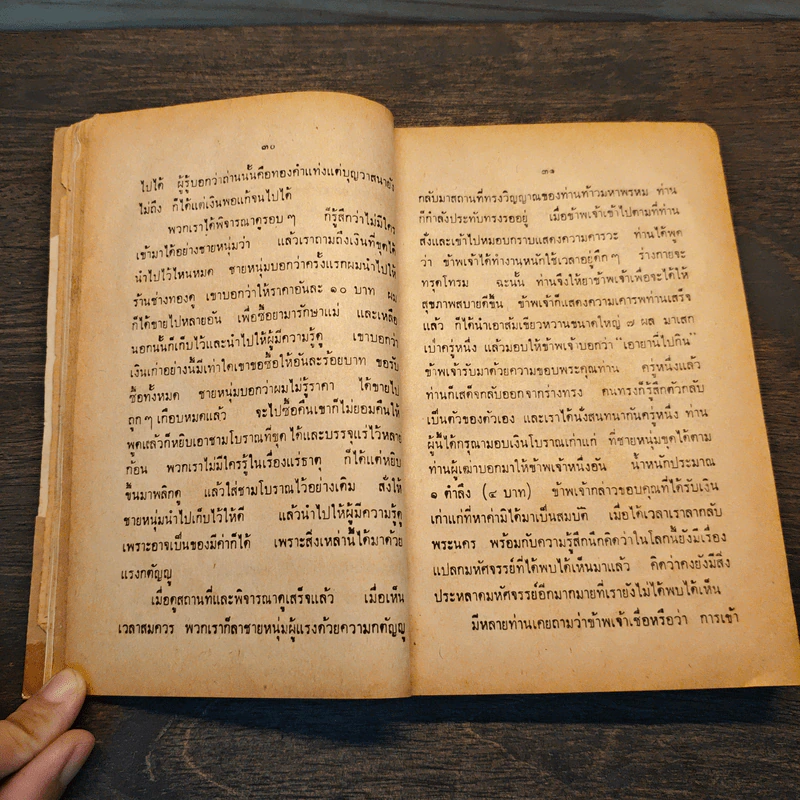 ๓๐
ไปได้ ผู้รู้บอกว่าถ่านนั้นคือทองคำแท่งแต่บุญวาสนายัง
ไม่ถึง ก็ได้แต่เงินพอแก้จนไปได้
พวกเราได้พิจารณาดูรอบๆ ก็รู้สึกว่าไม่มีใคร
เข้ามาได้อย่างชายหนุ่มว่า แล้วเราถามถึงเงินที่ขุดได้
นำไปไว้ไหนหมด ชายหนุ่มบอกว่าครั้งแรกผมนำไปให้
ร้านช่างทองดู เขาบอกว่าให้ราคาอันละ ๑๐ บาท ผม
ก็ได้ขายไปหลายอัน เพื่อซื้อยามารักษาแม่ และเหลือ
นอกนั้นก็เก็บไว้และนำไปให้ผู้มีความรู้ดู เขาบอกว่า
เงินเก่าอย่างนี้มีเท่าใดเขาขอซื้อให้อันละร้อยบาท ขอรับ
ซื้อทั้งหมด ชายหนุ่มบอกว่าผมไม่รู้ราคา ได้ขายไป
ถูกๆ เกือบหมดแล้ว จะไปซื้อคืนเขาก็ไม่ยอมคืนให้
พูดแล้วก็หยิบเอาชามโบราณที่ขุดได้และบรรจุแร่ไว้หลาย
ก้อน พวกเราไม่มีใครรู้ในเรื่องแร่ธาตุ ก็ได้แต่หยิบ
ขึ้นมาพลิกดู แล้วใส่ชามโบราณไว้อย่างเดิม สั่งให้
ชายหนุ่มนำไปเก็บไว้ให้ดี แล้วนำไปให้ผู้มีความรู้ดู
เพราะอาจเป็นของมีค่าก็ได้ เพราะสิ่งเหล่านี้ได้มาด้วย
แรงกตัญญู
เมื่อดูสถานที่และพิจารณาดูเสร็จแล้ว เมื่อเห็น
เวลาสมควร พวกเราก็ลาชายหนุ่มผู้แรงด้วยความกตัญญู
๓๑
กลับมาสถานที่ทรงวิญญาณของท่านท้าวมหาพรหม ท่าน
ก็กำลังประทับทรงรออยู่ เมื่อข้าพเจ้าเข้าไปตามที่ท่าน
สั่งและเข้าไปหมอบกราบแสดงความคารวะ ท่านได้พูด
ว่า ข้าพเจ้าได้ทำงานหนักใช้เวลาอยู่ดึกๆ ร่างกายจะ
ทรุดโทรม ฉะนั้น ท่านจึงให้ยาข้าพเจ้าเพื่อจะได้ให้
สุขภาพสบายดีขึ้น ข้าพเจ้าก็แสดงความเคารพท่านเสร็จ
แล้ว ก็ได้นำเอาส้มเขียวหวานขนาดใหญ่ ๗ ผล มาเสก
เป่าครู่หนึ่ง แล้วมอบให้ข้าพเจ้าบอกว่า "เอายานี่ไปกิน"
ข้าพเจ้ารับมาด้วยความขอบพระคุณท่าน ครู่หนึ่งแล้ว
ท่านก็เสด็จกลับออกจากร่างทรง คนทรงก็รู้สึกตัวกลับ
เป็นตัวของตัวเอง และเราได้นั่งสนทนากันครู่หนึ่ง ท่าน
ผู้นี้ได้กรุณามอบเงินโบราณเก่าแก่ ที่ชายหนุ่มขุดได้ตาม
ท่านผู้เฒ่าบอกมาให้ข้าพเจ้าหนึ่งอัน น้ำหนักประมาณ
๑ ตำลึง (๔ บาท) ข้าพเจ้ากล่าวขอบคุณที่ได้รับเงิน
เก่าแก่ที่หาค่ามิได้มาเป็นสมบัติ เมื่อได้เวลาเราลากลับ
พระนคร พร้อมกับความรู้สึกนึกคิดว่าในโลกนี้ยังมีเรื่อง
แปลกมหัศจรรย์ที่ได้พบได้เห็นมาแล้ว คิดว่าคงยังมีสิ่ง
ประหลาดมหัศจรรย์อีกมากมายที่เรายังไม่ได้พบได้เห็น
มีหลายท่านเคยถามว่าข้าพเจ้าเชื่อหรือว่า การเข้า